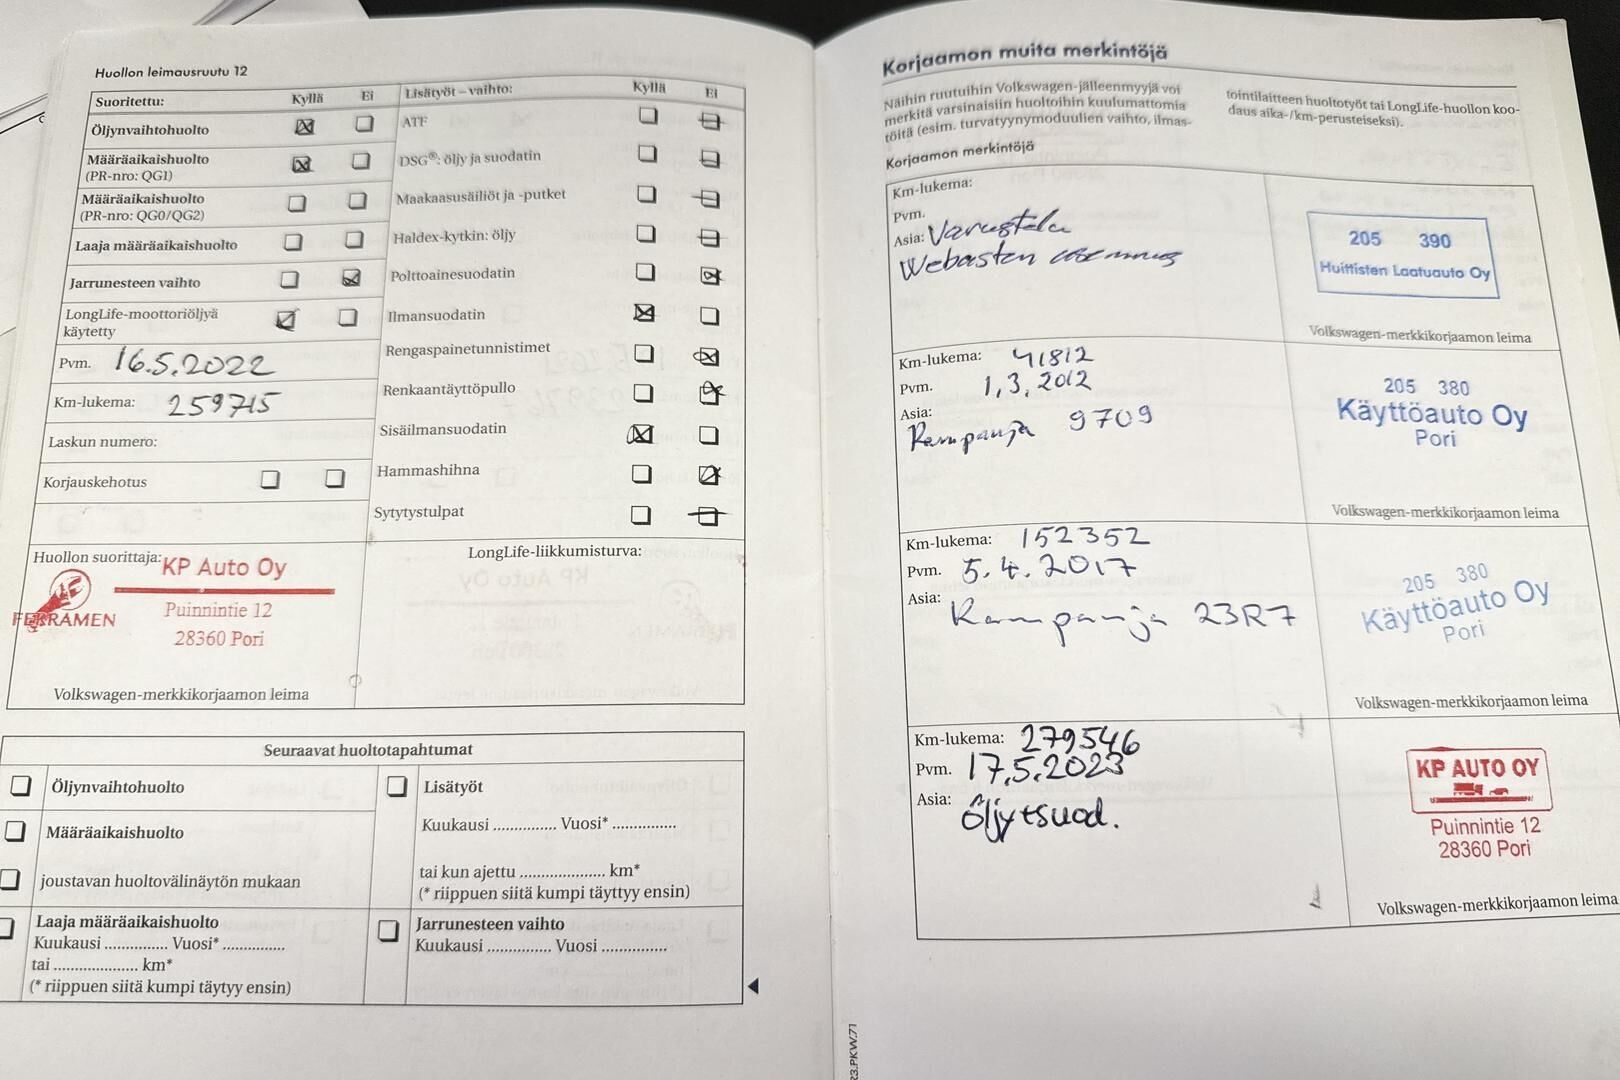 Huollon leimausruutu 12
Suoritettu: Kyllä Ei
Öljynvaihtohuolto
Määräaikaishuolto
(PR-nro: QG1)
Määräaikaishuolto
(PR-nro: QG0/QG2)
Laaja määräaikaishuolto
Jarrunesteen vaihto
LongLife-moottoriöljyä
käytetty
Pvm. 16.5.2022
Km-lukema: 259715
Laskun numero:
Korjauskehotus
Lisätyöt – vaihto: Kyllä Ei
ATF
DSG®: öljy ja suodatin
Maakaasusäiliöt ja -putket
Haldex-kytkin: öljy
Polttoainesuodatin
Ilmansuodatin
Rengaspainetunnistimet
Renkaantäyttöpullo
Sisäilmansuodatin
Hammashihna
Sytytystulpat
Huollon suorittaja:
KP Auto Oy
FERRAMEN
Puinnintie 12
28360 Pori
Volkswagen-merkkikorjaamon leima
LongLife-liikkumisturva:
Seuraavat huoltotapahtumat
Öljynvaihtohuolto
Määräaikaishuolto
joustavan huoltovälinäytön mukaan
Laaja määräaikaishuolto
Kuukausi ............... Vuosi* ...............
tai .................... km*
(* riippuen siitä kumpi täytyy ensin)
Lisätyöt
Kuukausi ............... Vuosi* ...............
tai kun ajettu .................... km*
(* riippuen siitä kumpi täyttyy ensin)
Jarrunesteen vaihto
Kuukausi ............... Vuosi ...............
Korjaamon muita merkintöjä
Näihin ruutuihin Volkswagen-jälleenmyyjä voi
merkitä varsinaisiin huoltoihin kuulumattomia
töitä (esim. turvatyynymoduulien vaihto, ilmas-
tointilaitteen huoltotyöt tai LongLife-huollon koo-
daus aika-/km-perusteiseksi).
Korjaamon merkintöjä
Km-lukema:
Pvm.
Asia: Varustelu
Webasten asennus
205 390
Huittisten Laatuauto Oy
Volkswagen-merkkikorjaamon leima
Km-lukema: 41812
Pvm. 1.3.2012
Asia:
Kampanja 9709
205 380
Käyttöauto Oy
Pori
Volkswagen-merkkikorjaamon leima
Km-lukema: 152352
Pvm. 5.4.2017
Asia:
Kampanja 23R7
205 380
Käyttöauto Oy
Pori
Volkswagen-merkkikorjaamon leima
Km-lukema: 279546
Pvm. 17.5.2023
Asia:
Öljytsuod.
KP AUTO OY
Puinnintie 12
28360 Pori
Volkswagen-merkkikorjaamon leima